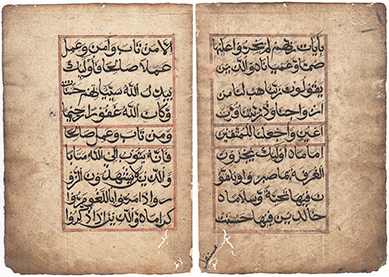 الا من تاب وامن وعمل
عملا صالحا فاولئك
يبدل الله سيئاتهم حسنات
وكان الله غفورا رحيما
ومن تاب وعمل صالحا
فانه يتوب الى الله متابا
والذين لا يشهدون الزو
ر واذا مروا باللغو مروا
كراما والذين اذا ذكروا
بايات ربهم لم يخروا عليها
صما وعميانا والذين
يقولون ربنا هب لنا من
ازواجنا وذرياتنا قرة
اعين واجعلنا للمتقين
اماما اولئك يجزون
الغرفة بما صبروا ويلقو
ن فيها تحية وسلاما
خالدين فيها حسنت